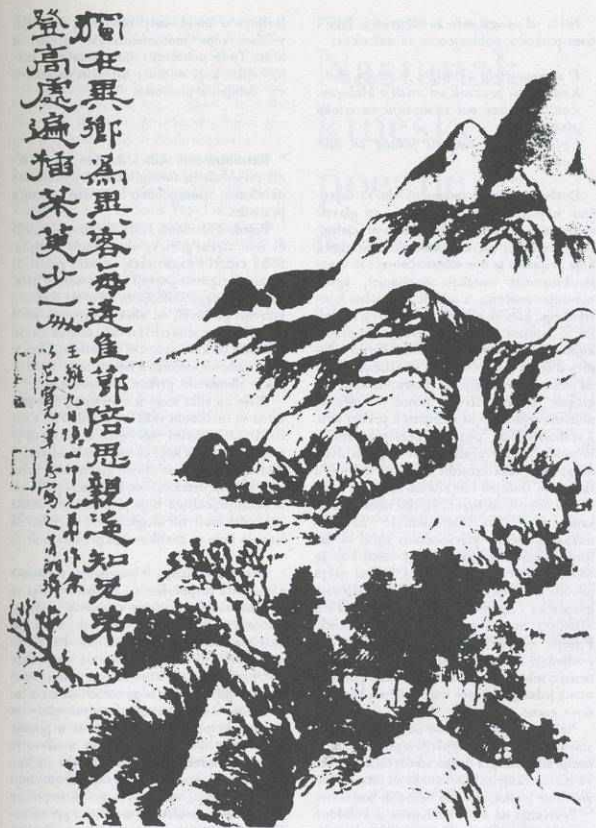 獨在異鄉爲異客每逢佳節倍思親遥知兄弟
登高處遍插茱萸少一人
王維九日憶山中兄弟作余
以范寬筆意寫之